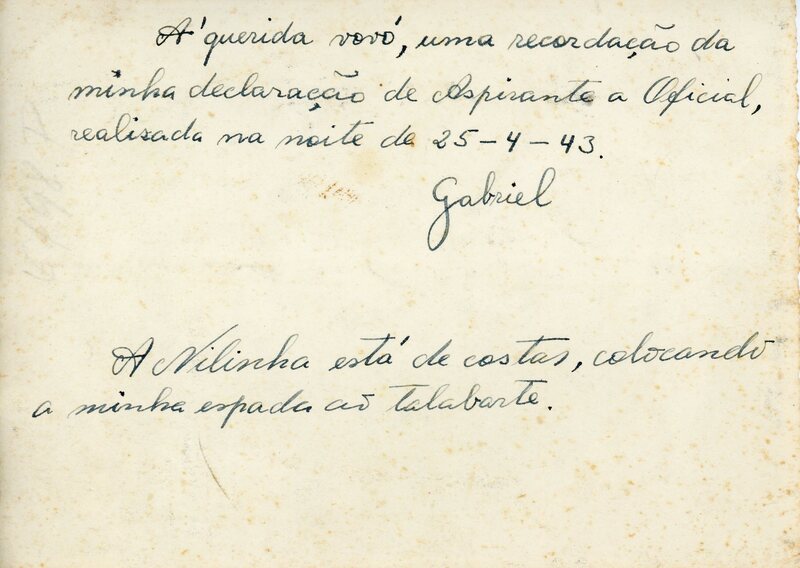 À querida vovó, uma recordação da
minha declaração de Aspirante a Oficial,
realizada na noite de 25-4-43.
Gabriel
A Nilinha está de costas, colocando
a minha espada ao talabarte.